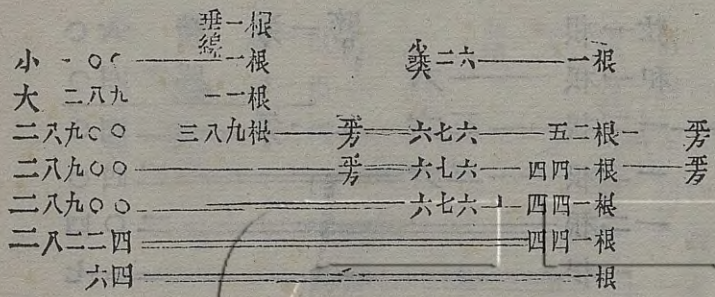 垂線 一根
小 一〇〇 一根 小奭二六 一根
大 二八九 一一根
二八九〇〇 三八九根 一平方 六七六 五二根 一平方
二八九〇〇 一平方 六七六 四四一根 一平方
二八九〇〇 六七六 四四一根
二八二二四 四四一根
六四 一根